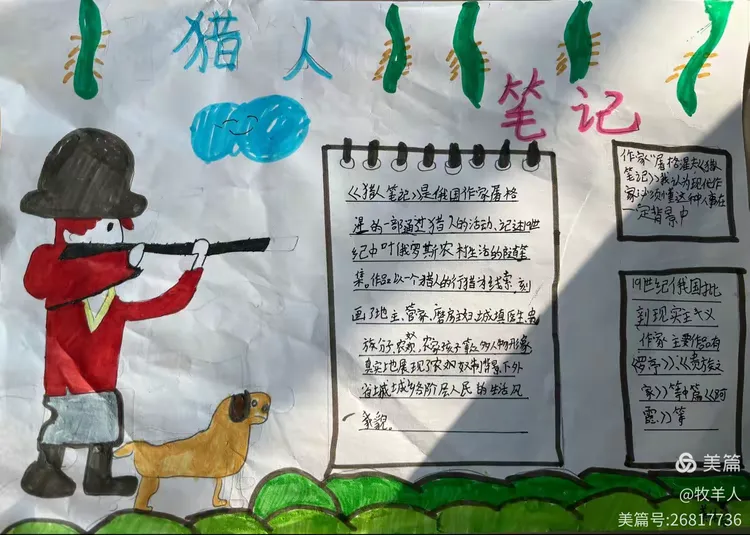 猎人
笔记
《猎人笔记》是俄国作家屠格
涅的一部通过猎人的活动、记述19世
纪中叶俄罗斯农村生活的随笔
集。作品以一个猎人的行猎为线索,刻
画了地主、管家、磨房妇、城镇医生、
族分子、农奴、农家孩子等众多人物形象
真实地展现了农奴制背景下外
省城乡各阶层人民的生活风
貌。
作家"屠格涅夫《猎
笔记》我认为现代作
家必须懂这种人事在
一定背景中
19世纪俄国批
判现实主义
作家 主要作品有
《罗亭》《贵族之
家》等中篇《阿
霞》等
美篇
@牧羊人
美篇号:26817736